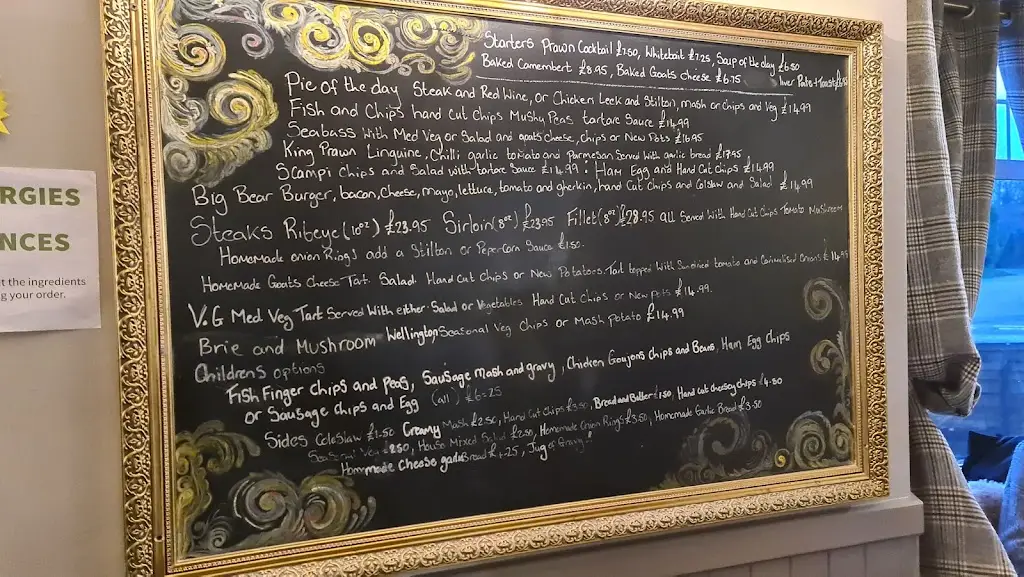 Starters Prawn Cocktail £7.50, Whitebait £7.25, Soup of the day £6.50
Baked Camembert £8.95, Baked Goats cheese £6.75
Pate + Toast
Pie of the day Steak and Red Wine, or Chicken Leek and Stilton, mash or chips and Veg £14.99
Fish and Chips hand cut Chips Mushy Peas tartare Sauce £14.99
Seabass with Med Veg or Salad and goats cheese, Chips or New Pots £16.95
King Prawn Linguine, Chilli garlic tomato and Parmesan Served with garlic bread £17.95
Scampi chips and Salad with tartare Sauce £14.99. Ham Egg and Hand Cut Chips £14.99
Big Bear Burger, bacon, Cheese, mayo, lettuce, tomato and gherkin, hand Cut Chips and Colslaw and Salad £14.99
Steaks Ribeye (10oz) £23.95 Sirloin (8oz) £23.95 Fillet (8oz) £28.95 all Served with Hand Cut Chips Tomato Mushroom
Homemade onion Rings add a Stilton or Peper-Corn Sauce £1.50.
Homemade Goats Cheese Tart. Salad. Hand Cut chips or New Potatoes. Tart topped with Sundried tomato and Carmalised Onions £14.99
V.G Med Veg Tart Served with either Salad or Vegetables Hand Cut Chips or New Pots £14.99.
Brie and Mushroom Wellington Seasonal Veg Chips or Mash Potato £14.99
Childrens options
Fish Finger chips and peas, Sausage Mash and gravy, Chicken Goujons Chips and Beans, Ham Egg Chips
or Sausage chips and Egg (all) £6=25
Sides Coleslaw £1.50 Creamy Mash £2.50, Hand Cut Chips £3.50, Bread and Butter £1.50, Hand cut cheesey chips £4.50
Seasonal Veg £2.50, House Mixed Salad £2.50, Homemade Onion Rings £3.50, Homemade Garlic Bread £3.50
Hommade cheese garlic Bread £4.25, Jug of Gravy
RGIES
NCES
t the ingredients
g your order.